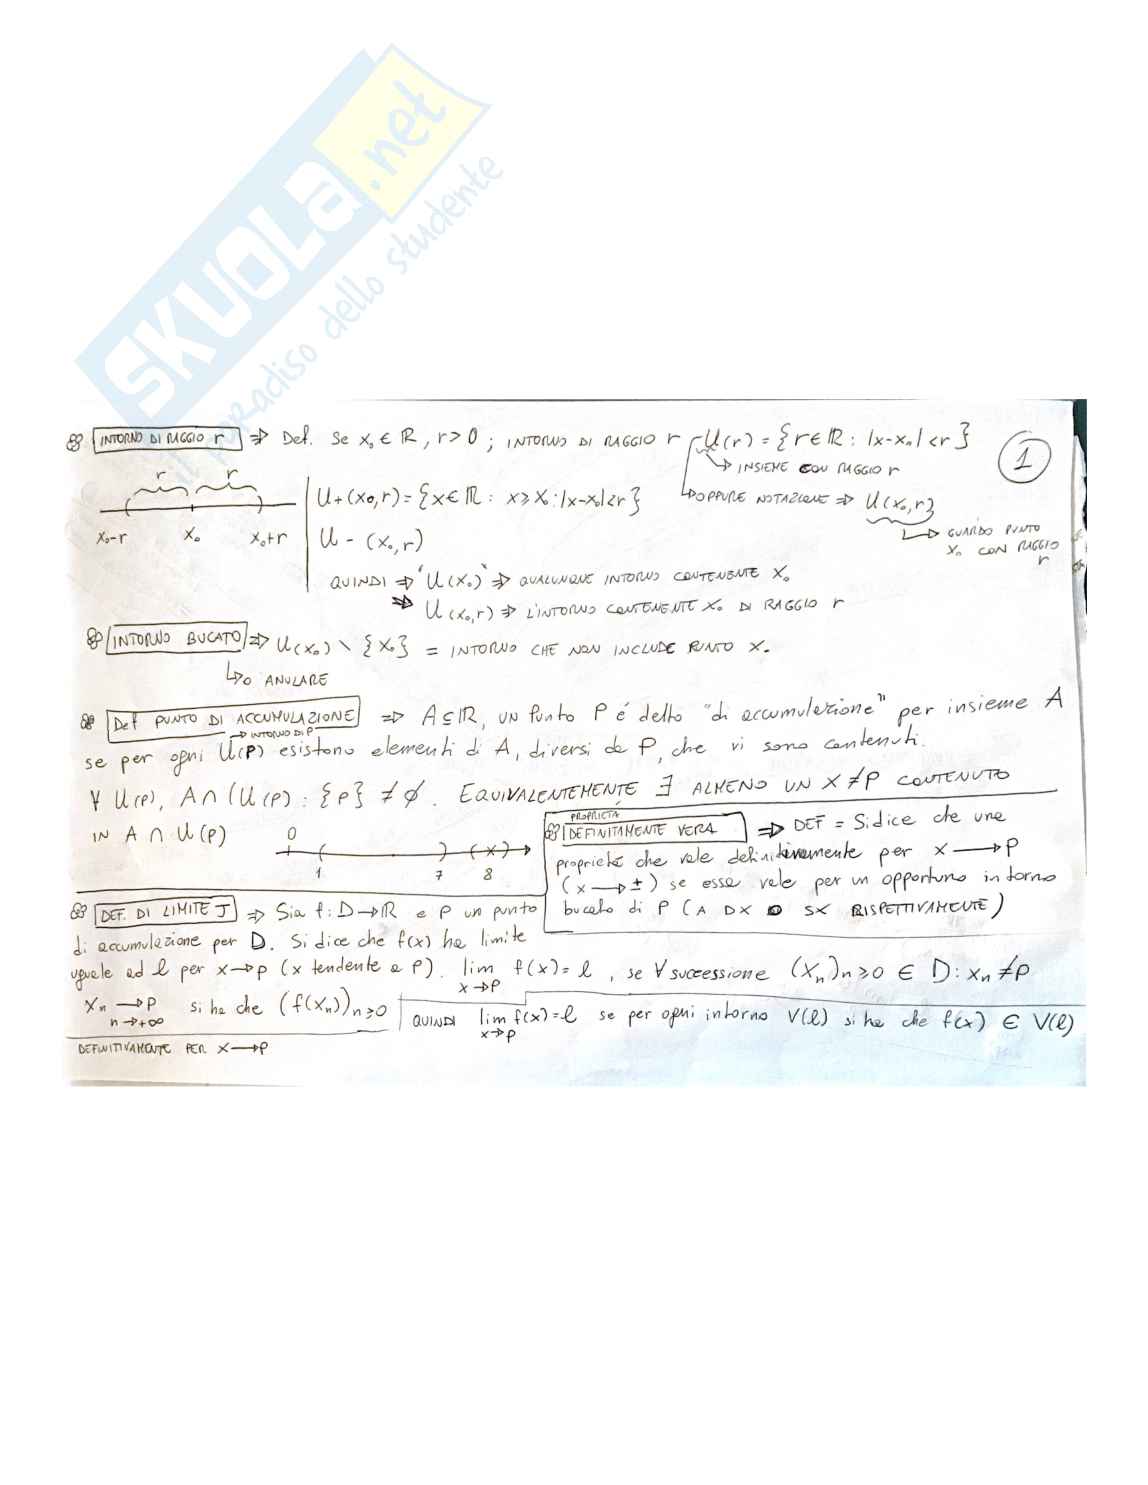 SKUOLA.net
il paradiso dello studente
INTORNO DI RAGGIO r ⇒ Def. Se x₀ ∈ ℝ, r>0 ; INTORNO DI RAGGIO r U(r) = {r∈ℝ : |x-x₀|<r}
1
↳ INSIEME CON RAGGIO r
↳ OPPURE NOTAZIONE ⇒ U(x₀,r)
↳ GUARDO PUNTO
x₀ CON RAGGIO
r
r r
x₀-r x₀ x₀+r
U+(x₀,r)={x∈ℝ : x≥x₀:|x-x₀|<r}
U-(x₀,r)
QUINDI ⇒ 'U(x₀)' ⇒ QUALUNQUE INTORNO CONTENENTE x₀
⇒ U(x₀,r) ⇒ L'INTORNO CONTENENTE x₀ DI RAGGIO r
INTORNO BUCATO ⇒ U(x₀) \ {x₀} = INTORNO CHE NON INCLUDE PUNTO x₀
↳ O ANULARE
Def PUNTO DI ACCUMULAZIONE ⇒ A⊆ℝ, UN Punto P é detto "di accumulazione" per insieme A
→ INTORNO DI P
se per ogni U(P) esistono elementi di A, diversi da P, che vi sono contenuti.
∀ U(P), A∩(U(P) : {P} ≠ ∅. EQUIVALENTEMENTE ∃ ALMENO UN X≠P CONTENUTO
IN A ∩ U(P)
0 1 7 8
PROPRIETÀ
DEFINITAMENTE VERA ⇒ DEF = Si dice che una
proprietà che vale definitivamente per x → P
(x → ±) se essa vale per un opportuno intorno
bucato di P (A DX O SX RISPETTIVAMENTE)
DEF. DI LIMITE ⇒ Sia f: D→ℝ e P un punto
di accumulazione per D. Si dice che f(x) ha limite
uguale ad l per x→p (x tendente a P). lim f(x) = l, se ∀ successione (Xn)n≥0 ∈ D: xn≠P
x→P
xn → P si ha che (f(xn))n≥0
n→+∞
QUINDI lim f(x)=l se per ogni intorno V(l) si ha che f(x) ∈ V(l)
x→p
DEFINITIVAMENTE PER X → P